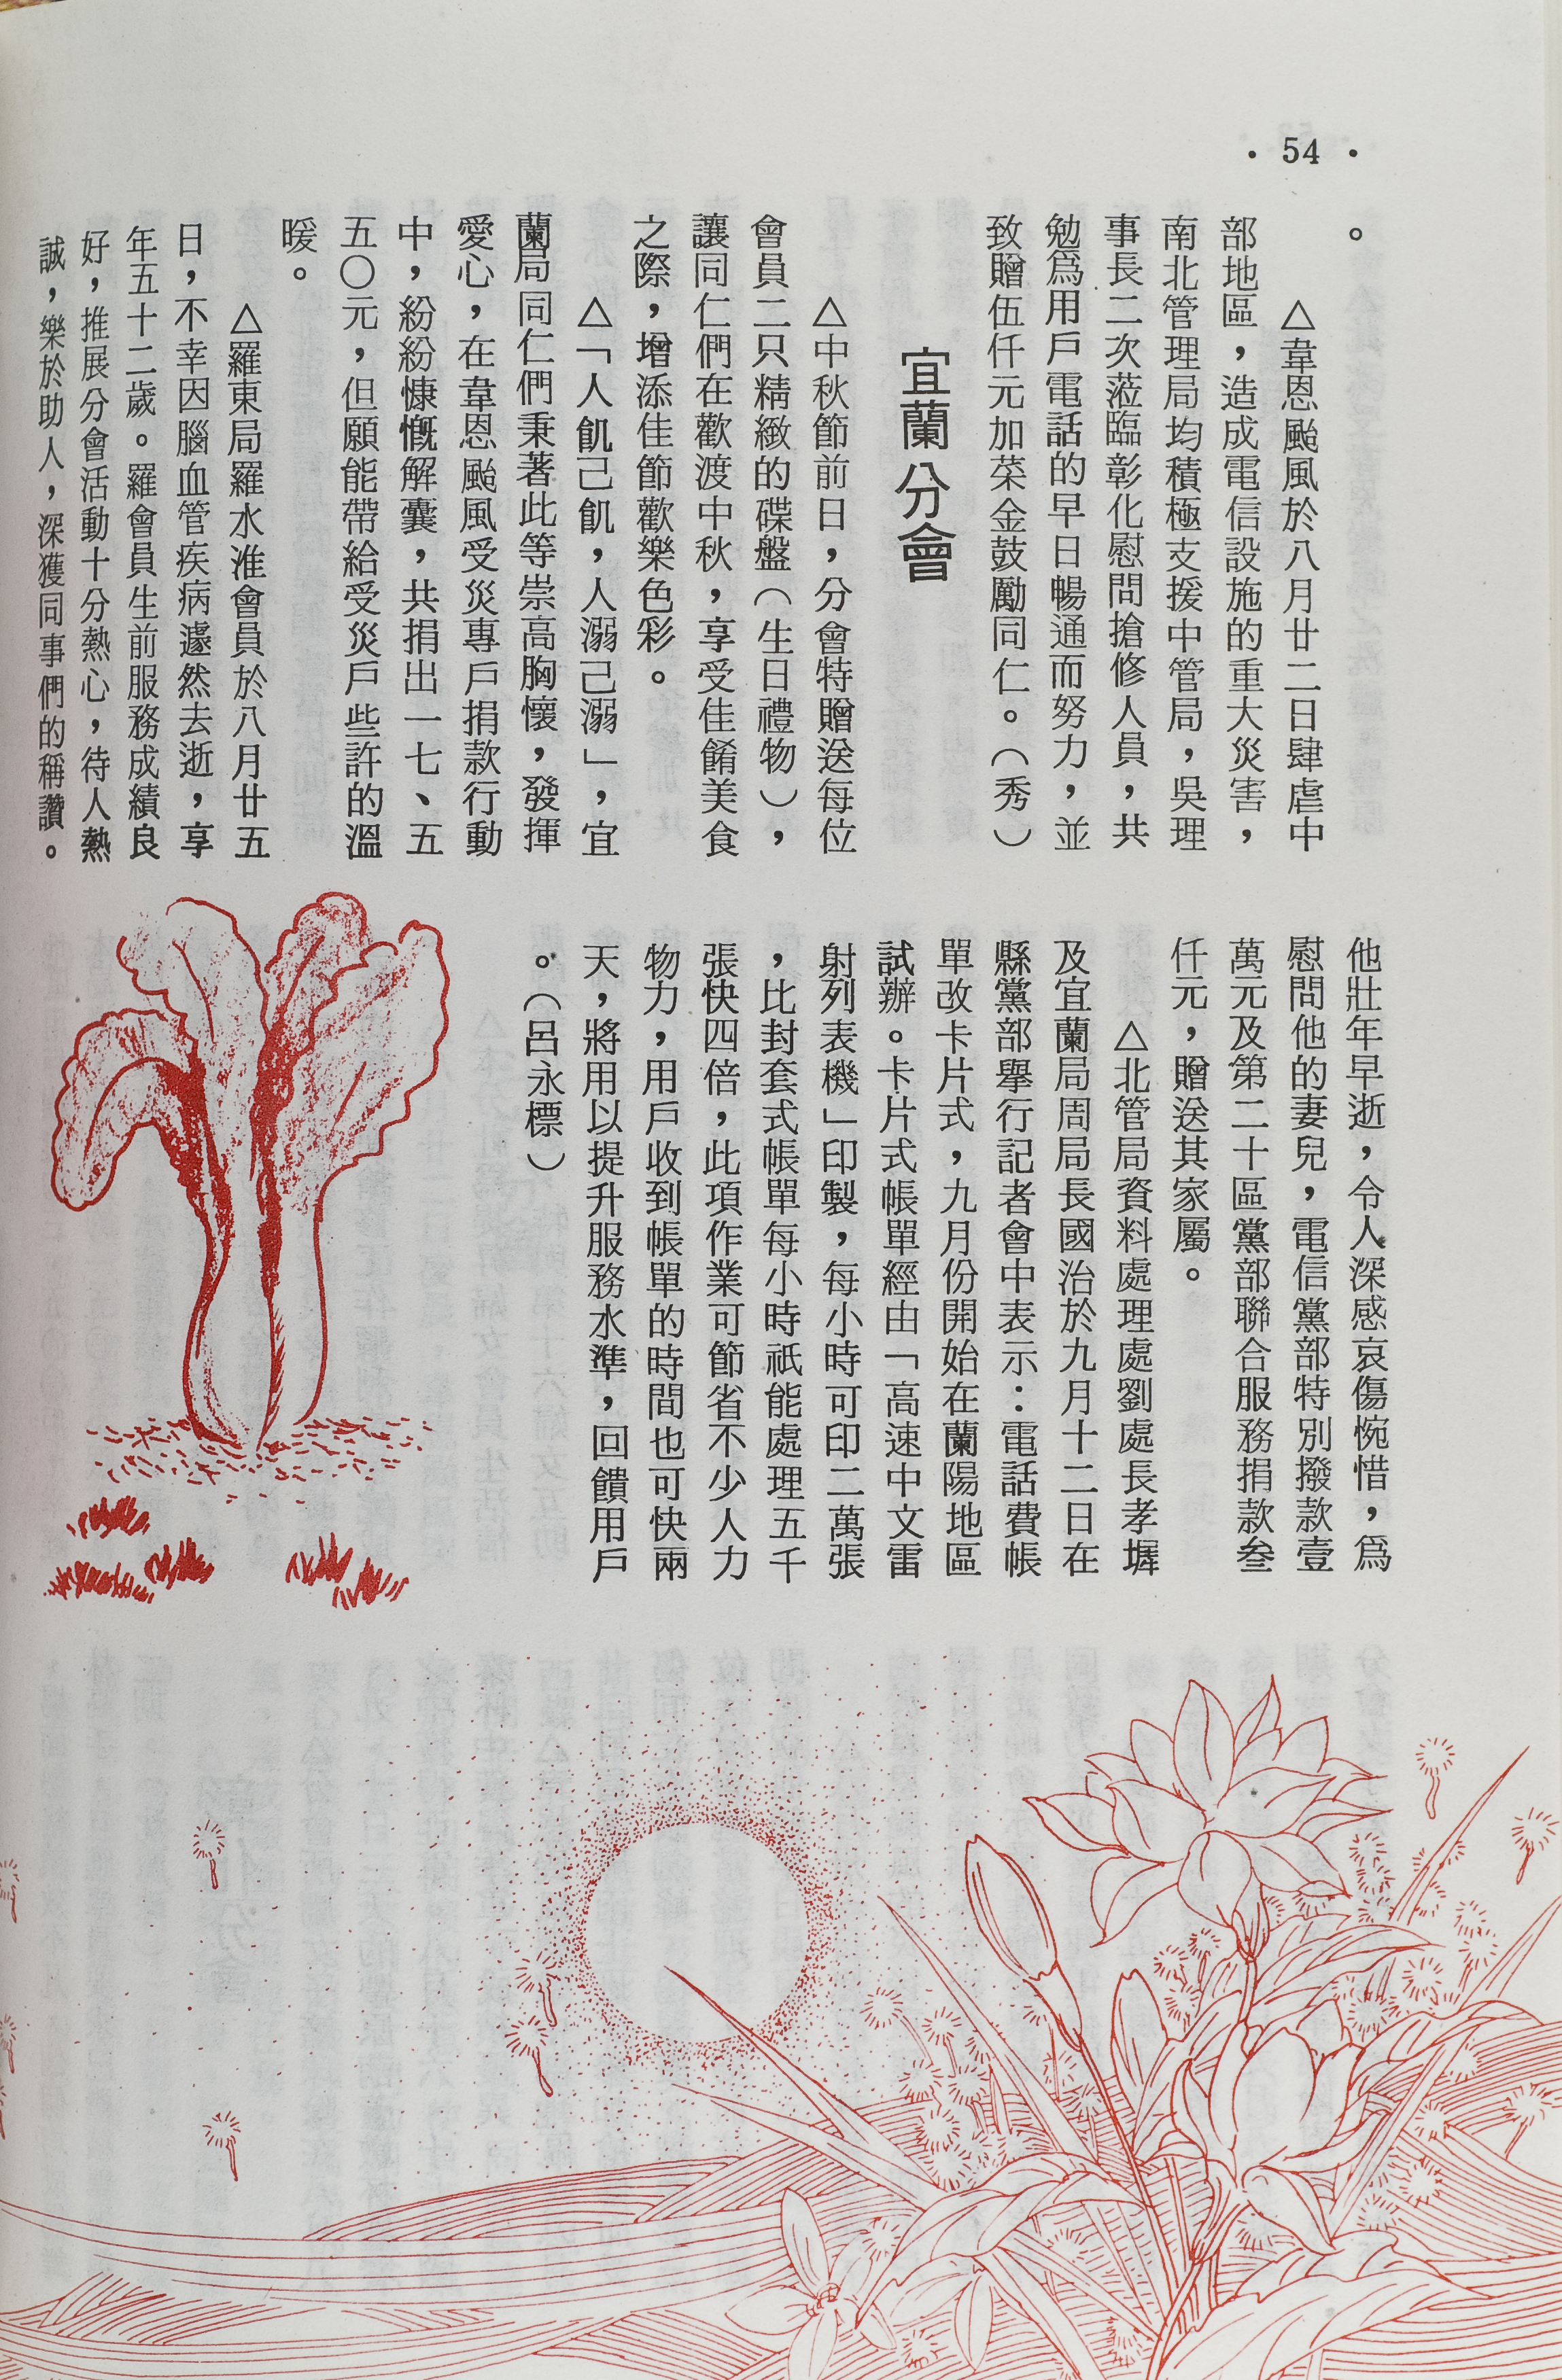 ・54・
。
△韋恩颱風於八月廿二日肆虐中
部地區，造成電信設施的重大災害，
南北管理局均積極支援中管局，吳理
事長二次蒞臨彰化慰問搶修人員，共
勉爲用戶電話的早日暢通而努力，並
致贈伍仟元加菜金鼓勵同仁。（秀）
宜蘭分會
△中秋節前日，分會特贈送每位
會員二只精緻的碟盤（生日禮物），
讓同仁們在歡渡中秋，享受佳餚美食
之際，增添佳節歡樂色彩。
△「人飢己飢，人溺己溺」，宜
蘭局同仁們秉著此等崇高胸懷，發揮
愛心，在韋恩颱風受災專戶捐款行動
中，紛紛慷慨解囊，共捐出一七、五
五〇元，但願能帶給受災戶些許的溫
暖。
△羅東局羅水淮會員於八月廿五
日，不幸因腦血管疾病遽然去逝，享
年五十二歲。羅會員生前服務成績良
好，推展分會活動十分熱心，待人熱
誠，樂於助人，深獲同事們的稱讚。
他壯年早逝，令人深感哀傷惋惜，爲
慰問他的妻兒，電信黨部特別撥款壹
萬元及第二十區黨部聯合服務捐款叁
仟元，贈送其家屬。
△北管局資料處理處劉處長孝墀
及宜蘭局周局長國治於九月十二日在
縣黨部舉行記者會中表示：電話費帳
單改卡片式，九月份開始在蘭陽地區
試辦。卡片式帳單經由「高速中文雷
射列表機」印製，每小時可印二萬張
，比封套式帳單每小時祇能處理五千
張快四倍，此項作業可節省不少人力
物力，用戶收到帳單的時間也可快兩
天，將用以提升服務水準，回饋用戶
。（呂永標）